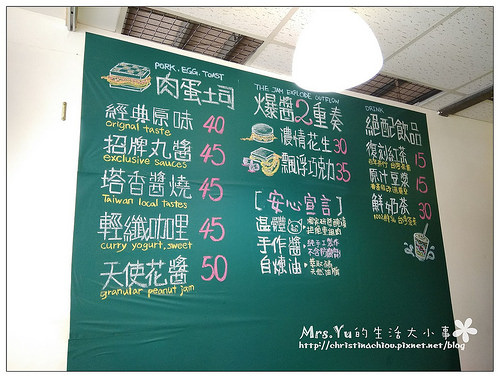 PORK. EGG. TOAST
肉蛋土司
經典原味 40
orignal taste
招牌丸醬 45
exclusive sauces
塔香醬燒 45
Taiwan local tastes
輕纖咖哩 45
curry yogurt, sweet
天使花醬 50
granular peanut jam
THE JAM EXPLODE OUTFLOW
爆醬2重奏
濃情花生 30
飄浮巧克力 35
[安心宣言]
溫體
手作醬
自煉油
DRINK
絕配飲品
復刻紅茶 15
原汁豆漿 15
鮮奶茶 30
Mrs.Yu的生活大小事
http://christinachiou.pixnet.net/blog